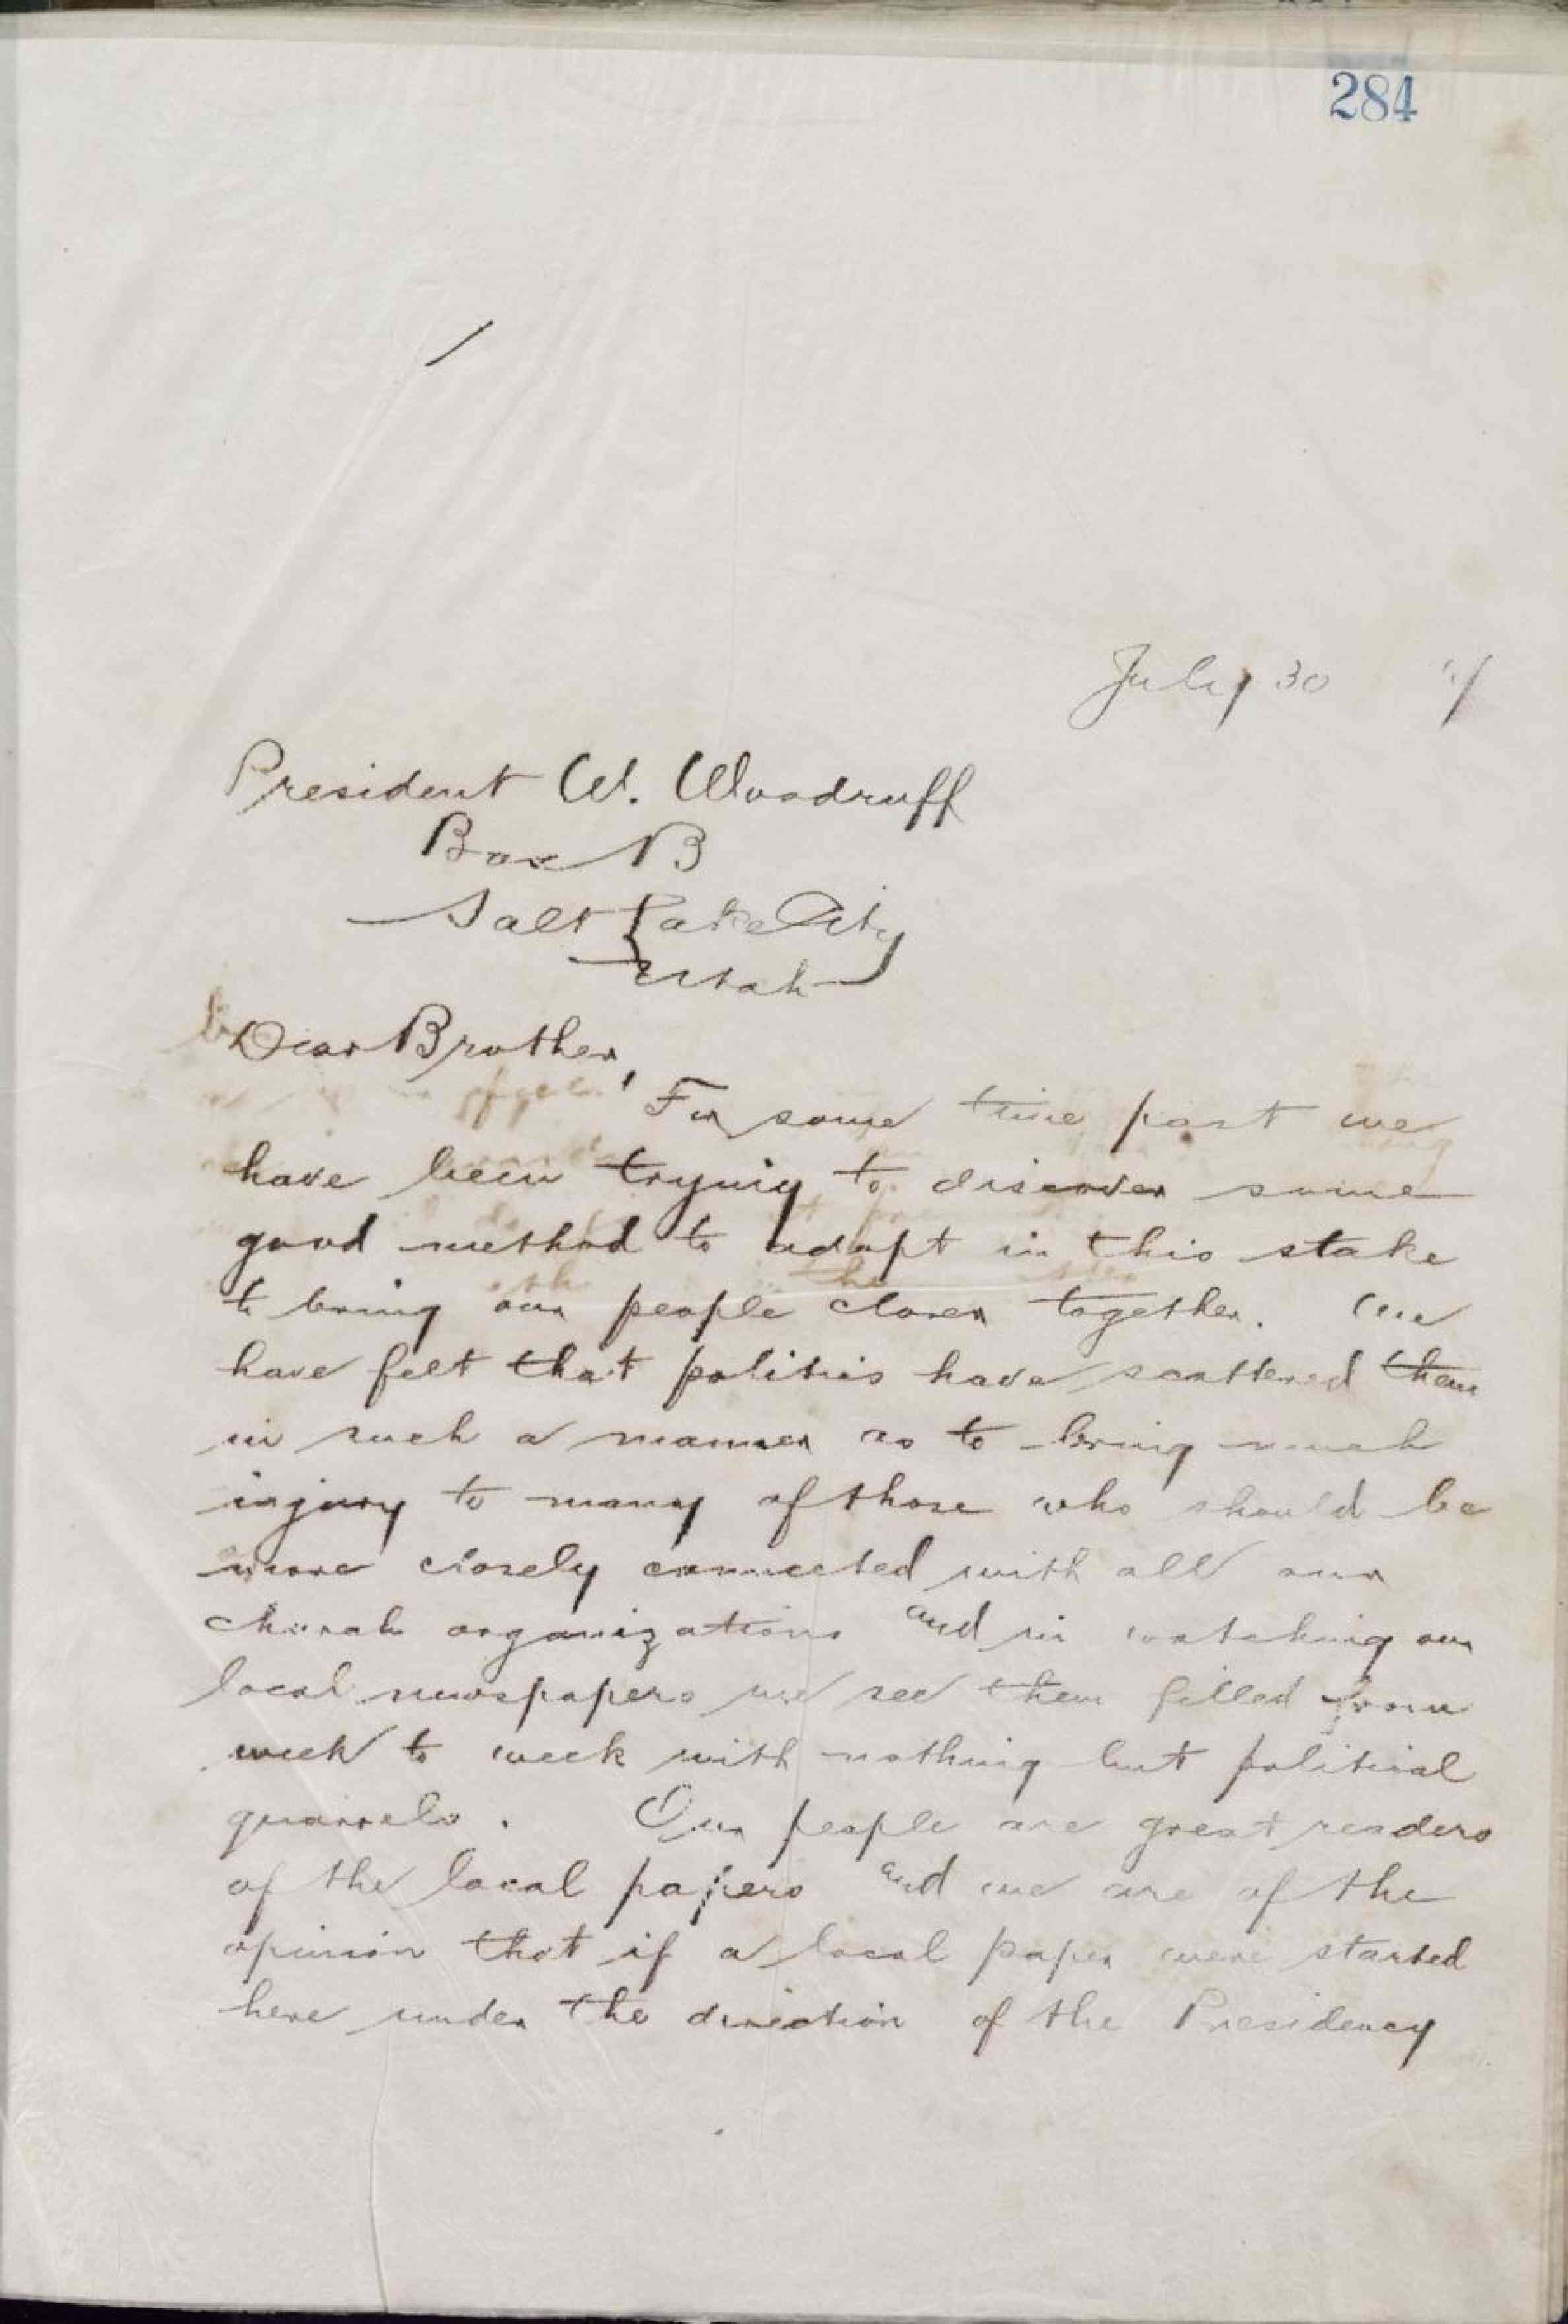 284
July 30
President W. Woodruff
Box B
Salt Lake City
Utah
Dear Brother,
For some time past we
have been trying to discover some
good method to adopt in this stake
to bring our people closer together. We
have felt that politics have scattered them
in such a manner as to bring much
injury to many of those who should be
more closely connected with all our
church organizations and in watching our
local newspapers we see them filled from
week to week with nothing but political
quarrels. Our people are great readers
of the local papers and we are of the
opinion that if a local paper were started
here under the direction of the Presidency